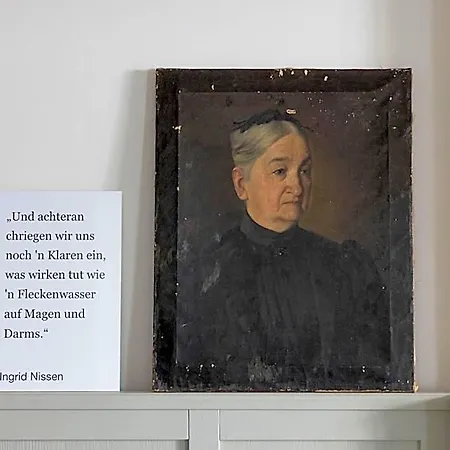 „Und achteran
chriegen wir uns
noch 'n Klaren ein,
was wirken tut wie
'n Fleckenwasser
auf Magen und
Darms.“
Ingrid Nissen